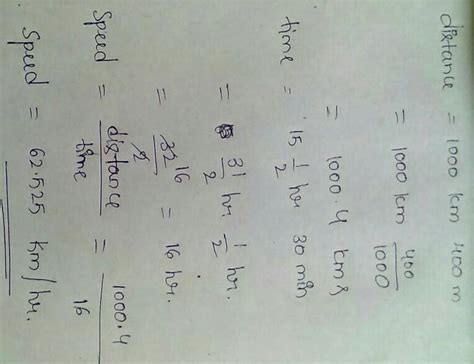 distance = 1000 km 400 m
= 1000 km 400/1000
= 1000.4 kms
time = 15 1/2 hr 30 min
= 31/2 hr 1/2 hr.
= 32/2 16 = 16 hr.
Speed = distance/time = 1000.4/16
Speed = 62.525 km/hr.